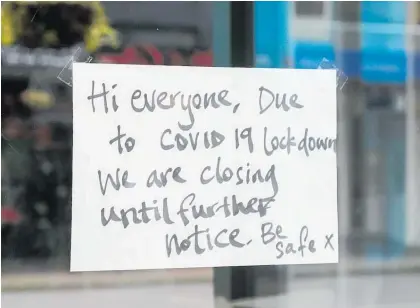 Hi everyone, Due
to COVID 19 lockdown
We are closing
until further
notice. Be
safe x